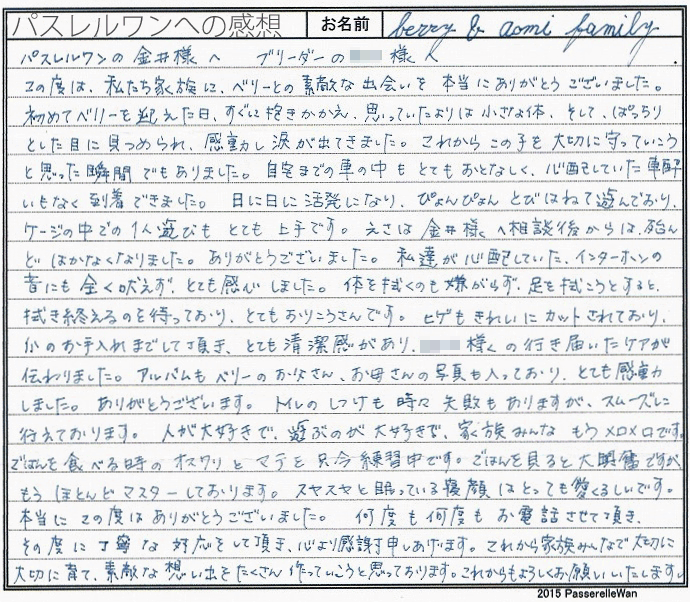 パスレルワンへの感想 お名前 berry & aomi family.
パスレルワンの 金井様へ ブリーダーの 様へ
この度は、私たち家族に、ベリーとの素敵な出会いを本当にありがとうございました。
初めてベリーを迎えた日、すぐに抱きかかえ、思っていたよりは小さな体、そして、ぱっちり
とした目に見つめられ、感動し涙が出てきました。これからこの子を大切に守っていこう
と思った瞬間でもありました。自宅までの車の中もとてもおとなしく、心配していた車酔
いもなく到着できました。日に日に活発になり、ぴょんぴょんとびはねて遊んでおり、
ケージの中での1人遊びもとても上手です。えさは金井様へ相談後からは、殆ん
どはかなくなりました。ありがとうございました。私達が心配していた、インターホンの
音にも全く吠えず、とても感心しました。体を拭くのも嫌がらず、足を拭こうとすると、
拭き終えるのを待っており、とてもおりこうさんです。ヒゲもきれいにカットされており、
のお手入れまでして頂き、とても清潔感があり、 様の行き届いたケアが
伝わりました。アルバムもベリーのお父さん、お母さんの写真も入っており、とても感動
しました。ありがとうございます。トイレのしつけも時々失敗もありますが、スムーズに
行えております。人が大好きで、遊ぶのが大好きで、家族みんなもうメロメロです。
ごはんを食べる時のオスワリとマテを只今練習中です。ごはんを見ると大興奮ですが
もうほとんどマスターしております。スヤスヤと眠っている寝顔はとっても愛くるしいです。
本当にこの度はありがとうございました。何度も何度もお電話させて頂き、
その度に丁寧な対応をして頂き、心より感謝申しあげます。これから家族みんなで大切に
大切に育て、素敵な想い出をたくさん作っていこうと思っております。これからもよろしくお願いいたします。
2015 PasserelleWan